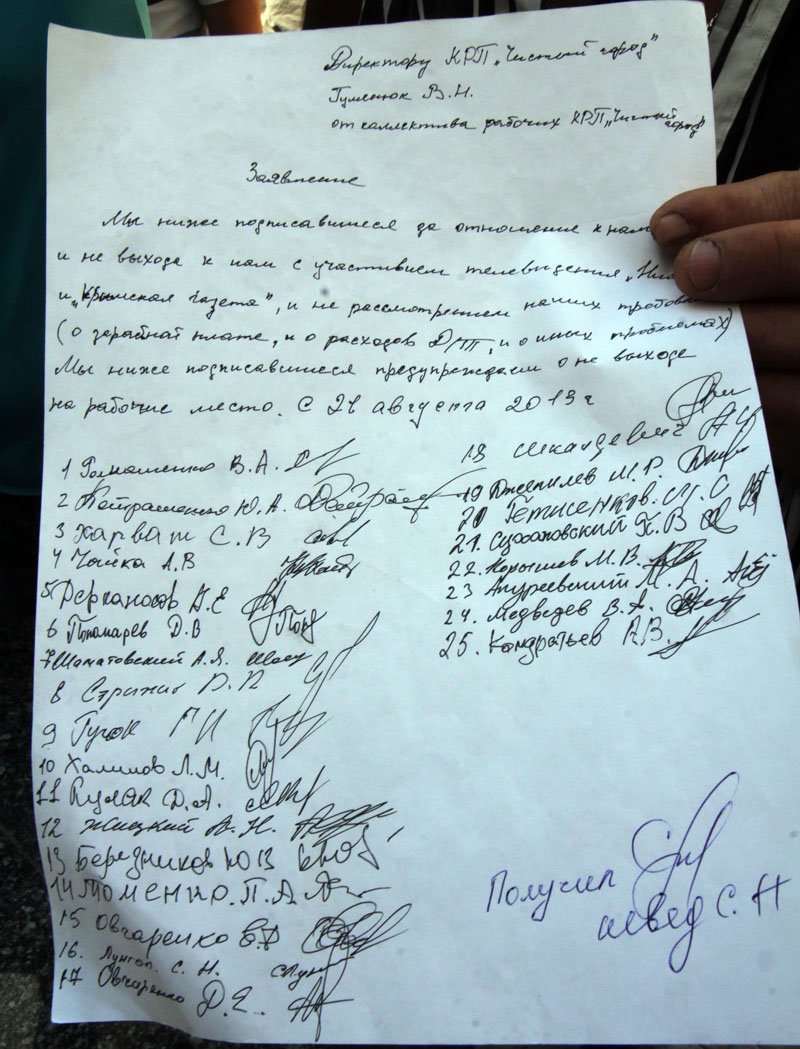 Директору КРП „Чистый город"
Гуменюк В.Н.
от коллектива рабочих КРП „Чистый город"
Заявление
Мы ниже подписавшиеся до отношение к нам
и не выхода к нам с участивием телевидения
и „Крымская газета", и не рассмотрением наших
(о заработной плате, и о расходов ДТП, и о иных проблемах)
Мы ниже подписавшиеся предупреждаем о не выходе
на рабочие место. С 21 августа 2013 г
1 Романенко В.А.
2 Петрашенко Ю.А.
3 Харват С.В
4 Чайка А.В
5 Д.Е
6 Пономарев Д.В
7 Шаматовский А.Я.
8 Стрижис В.П
9 Гучок Г И
10 Халилов Л.М.
11 Кулак Д.А.
12 Жицкий А.Н.
13 Бережников Ю В
14 Томенко.П.А
15 Овчаренко В.Д
16. С. Н.
17 Овчаренко Д.Е.
18
19 Джепилев М.Р.
20 М.С
21. П.В
22. М.В.
23 Андреевский М.А.
24. Медведев В.А.
25. Кондратьев А.В.
Получил
Швед С.Н